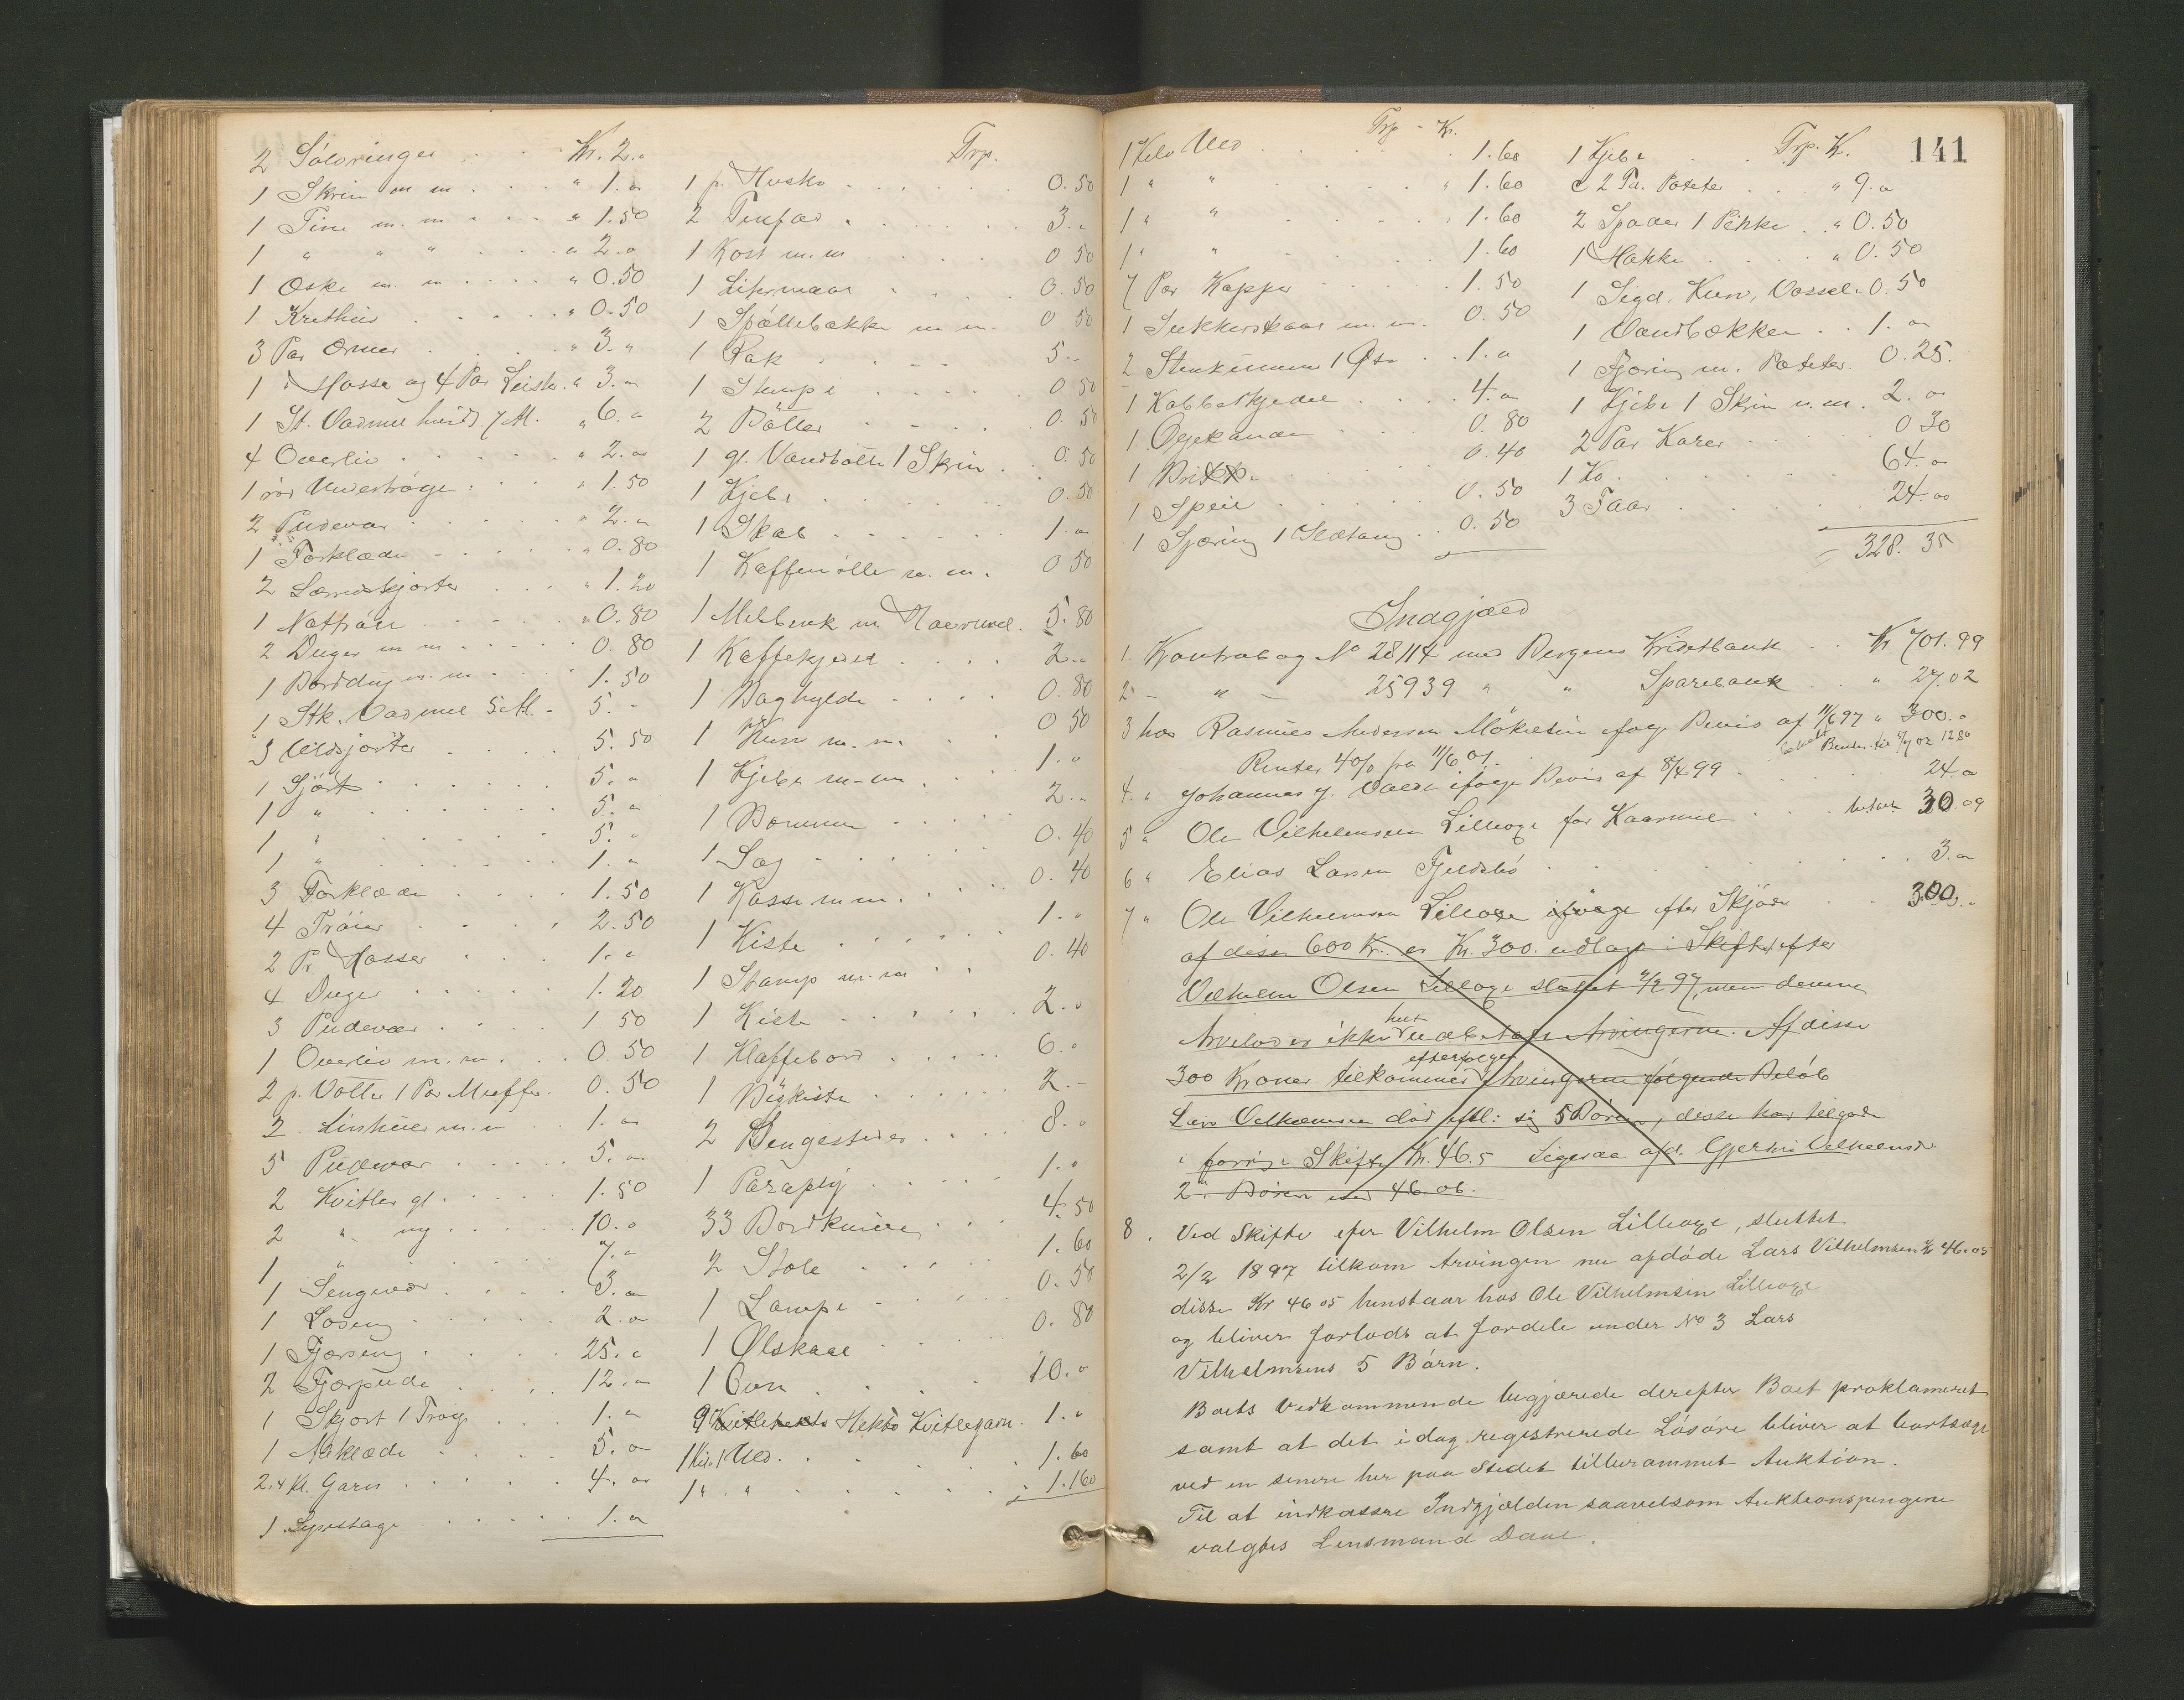 2 Sølvringer Kr. 2.„
1 Skrin m m „ 1.„
1 Tine m. m „ 1.50
1 „ „ „ „ 2.„
1 Øske m. m „ 0.50
1 Krithus „ 0.50
3 Par Ermer „ 3.„
1 „ Hosser og 4 Par Leister „ 3.„
1 St. Vadmel hvid 7 Al. „ 6.„
4 Overliv „ 2.„
1 rød Undertrøge „ 1.50
2 Pudevar „ 2.„
1 Forklæde „ 0.80
2 Lærredskjorter „ 1.20
1 Nattrøie „ 0.80
2 Duger m m 0.80
1 Borddug m. m 1.50
1 Stk. Vadmel 5 Al. 5.-
3 Uldsjorter 5.50
1 Sjørt 5.„
1 „ 5.„
1 „ 5.„
1 „ 1.„
3 Forklæder 1.50
4 Trøier 2.50
2 Pr. Hosser 1.„
4 Duger 1.20
3 Pudevær 1.50
1 Overliv m. m. 0.50
2 p. Votter 1 Par Muffer 0.50
2 Linhuer m. m 1.„
5 Pudevar 5.„
2 Kvitler gl. 1.50
2 „ ny 10.„
1 „ 7.„
1 Sengevær 3.„
1 Løseng 2.„
1 Fjærseng 25.„
2 Fjærpude 12.„
1 Skjort 1 Trøg 1.„
1 Aaklæde 5.„
2.4 Kl. Garn 4.„
1 Lysestage 1.„
Trp.
1 p. Husko 0.50
2 Tinfad 3.„
1 Kost m. m 0 50
1 0.50
1 Spøllebakke m m. 0 50
1 Rak 5.-
1 Stampe 0 50
2 Bøtter 0.50
1 gl. Vandbøtte 1 Skrin 0.50
1 Kjebe 0.50
1 Skab 1.„
1 Kaffemølle m. m. 0 50
1 Melbenk m Havremel. 5.80
1 Kaffekjedel 2.„
1 Baghylde 0.80
1 Kurv m. m. 0 50
1 Kjebe m. m. 1.„
1 Dommer 2.„
1 Sag 0.40
1 Kasse m m. 0.40
1 Kiste 1.„
1 Stamp m. m 0.40
1 Kiste 2.„
1 Klaffebord 6.„
1 Bijkiste 2.-
2 Sengesteder 8.„
1 Paraply 1.„
33 Bordknive 4.50
2 Stole 1.60
1 Lampe 0.50
1 Ølskaal 0.80
1 Ovn 10.„
9 Hekto Kvitlegarn. 1.„
1 Kilo Uld 1.60
1 „ „ 1.60
Trp - Kr.
1 Kilo Uld 1.60
1 „ „ „ 1.60
1 „ „ 1.60
1 „ „ 1.60
7 Par Kopper 1.50
1 Sukkerskaal m. m. 0.50
2 Stenkrummer 1 Øse 1.„
1 Kobbekjedel 4.„
1 Oljekande 0.80
1 Brikke 0.40
1 Speil 0.50
1 Spøring 1 Ildtang 0.50
Trp. K.
141
1 Kjebe
c 2 Td. Poteter „ 9.„
2 Spader 1 Pikke „ 0.50
1 Hakke „ 0.50
1 Sigd, Kurv, Vossel. 0.50
1 Vandbøkker 1.„
1 Fjøring m. Poteter 0.25.
1 Kjebe 1 Skrin m. m. 2.„
2 Par Karer 0 30
1 Ko 64.„
3 Faar 24.„
= 328. 35
Indgjæld
1. Kontrabog No 28114 med Bergens Kreditbank Kr 701.99
2 - „ - 25939 „ „ Sparebank „ 27.02
3 hos Rasmus Andersen Møkletun ifølge Bevis af 11/6 97 „ 300.„
Renter 4% fra 11/6 01. Renter til 7/7 02 12 80
4. „ Johannes J. Valde ifølge Bevis af 8/4 99 24.„
5 „ Ole Vilhelmsen Lilleøge for Kaarmel betalt 30.09
6 „ Elias Larsen Fjeldsbø 3.„
7 „ Ole Vilhelmsen Lilleøge ifølge efter Skjøde 300.„
af disse 600 Kr. er Kr. 300. udlagt i Skiftet efter
Vilhelm Olsen Lilleøge sluttet 2/2 97, men denne
Arvelod er ikke helt udbetalt Arvingerne. Af disse
300 Kroner tilkommer efterfølgen Arvingerne følgende Beløb
Lars Vilhelmsen død eftl: sig 5 Børn, disse har tilgode
i forrige Skifte Kr. 46.5 Ligesaa afd. Gjertru Vilhelmsd
2 „ Børn med 46.06.
8. Ved Skifte efter Vilhelm Olsen Lilleøge, sluttet
2/2 1897 tilkom Arvingen nu afdøde Lars Vilhelmsen Kr 46.05
disse Kr 46 05 henstaar hos Ole Vilhelmsen Lilleøge
og bliver forlods at fordele under No 3 Lars
Vilhelmsens 5 Børn.
Boets Vedkommende begjærede derefter Boet proklameret
samt at det idag registrerede Løsøre bliver at bortsælge
ved en senere her paa Stedet tilberammet Auktion.
Til at indkassere Indgjælden saavelsom Auktionspengene
valgtes Lensmand Daae.